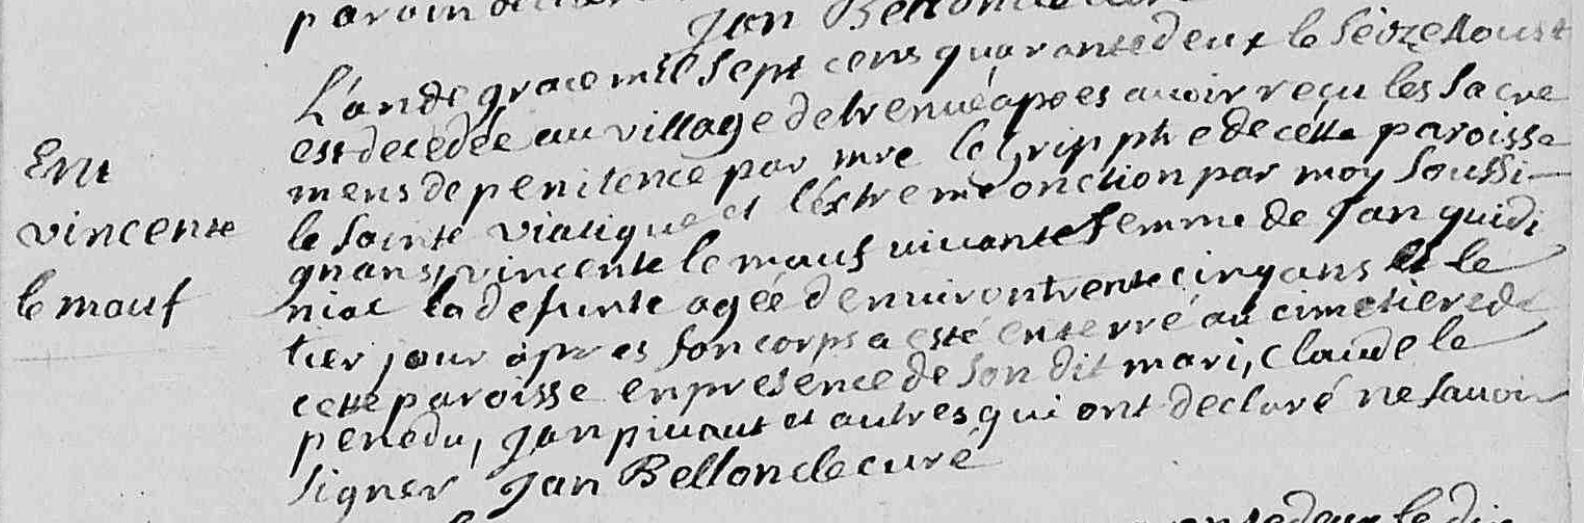 paroin
Jan Belloncle
L'an de grace mil sept cens quarante deux le seize Aoust
est decedée au village de trenué apres avoir reçu les sacre
Ent
mens de penitence par mre le Grip ptre de cette paroisse
le sainte viatique et l'extreme onction par moy soussi-
vincente
gnant, vincente le mauf vivante femme de Jan guidi
le mauf
niac la defunte agée d'environ trente cinq ans et le
tier jour apres son corps a esté enterré au cimetiere de
cette paroisse en presence de son dit mari, Claude le
penedu, Jan pivaut et autres qui ont declaré ne savoir
signer Jan Belloncle curé